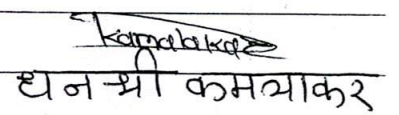 Kamalakar
धनश्री कमलाकर